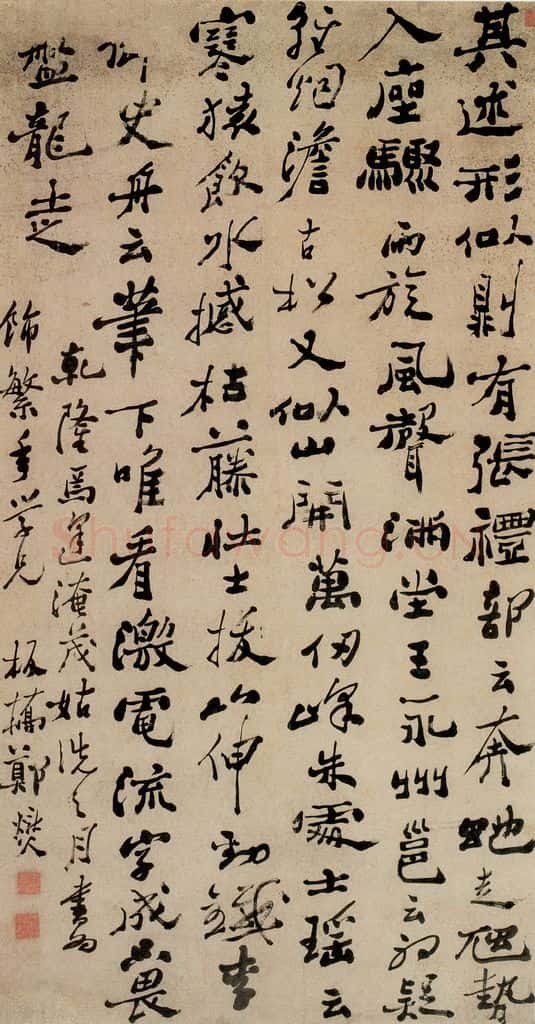 其述形似則有張禮部云奔虵走虺勢
入座驟雨旋風聲滿堂王永州邕云初疑
輕烟澹古松又似山開萬仞峰朱處士瑶云
寒猿飲水撼枯藤壯士拔山伸勁鐵李
御史舟云筆下唯看激電流字成只畏
盤龍走
乾隆焉逢淹茂姑洗之月書為
飾繁年學兄 板橋鄭燮
Shufawang.CN